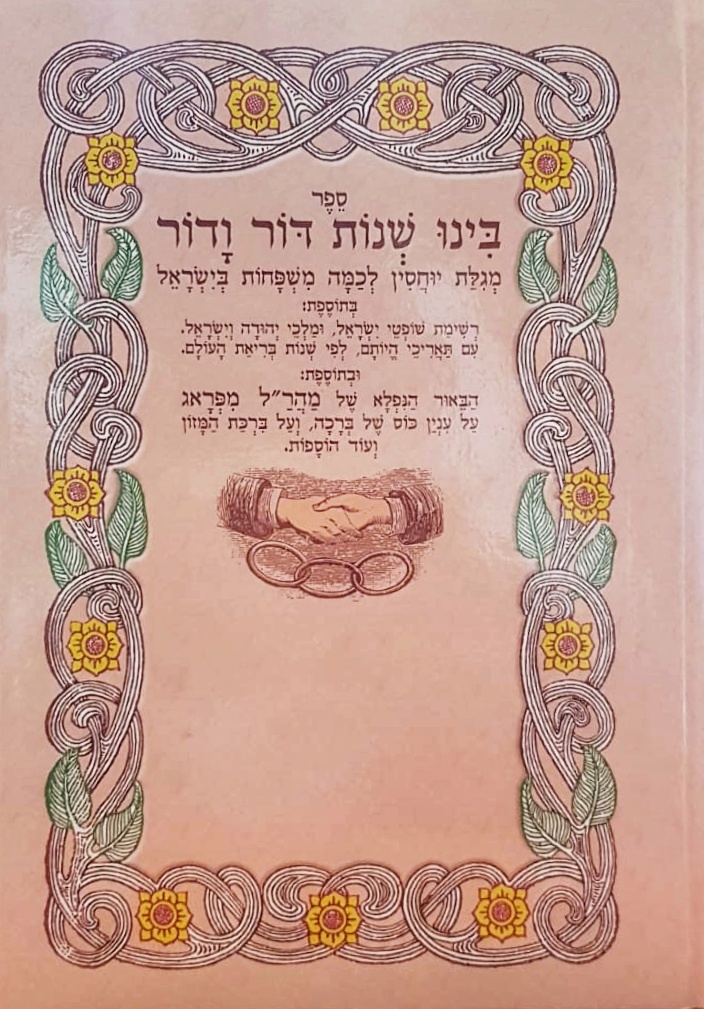 סֵפֶר
בִּינוּ שְׁנוֹת דּוֹר וָדוֹר
מְגִלַּת יוּחֲסִין לְכַמָּה מִשְׁפָּחוֹת בְּיִשְׂרָאֵל
בְּתוֹסֶפֶת:
רְשִׁימַת שׁוֹפְטֵי יִשְׂרָאֵל, וּמַלְכֵי יְהוּדָה וְיִשְׂרָאֵל.
עִם תַּאֲרִיכֵי הֱיוֹתָם, לְפִי שְׁנוֹת בְּרִיאַת הָעוֹלָם.
וּבְתוֹסֶפֶת:
הַבֵּאוּר הַנִּפְלָא שֶׁל מַהֲרַ״ל מִפְּרָאג
עַל עִנְיַן כּוֹס שֶׁל בְּרָכָה, וְעַל בִּרְכַּת הַמָּזוֹן
וְעוֹד הוֹסָפוֹת.